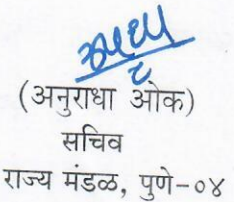 (अनुराधा ओक)
सचिव
राज्य मंडळ, पुणे-०४